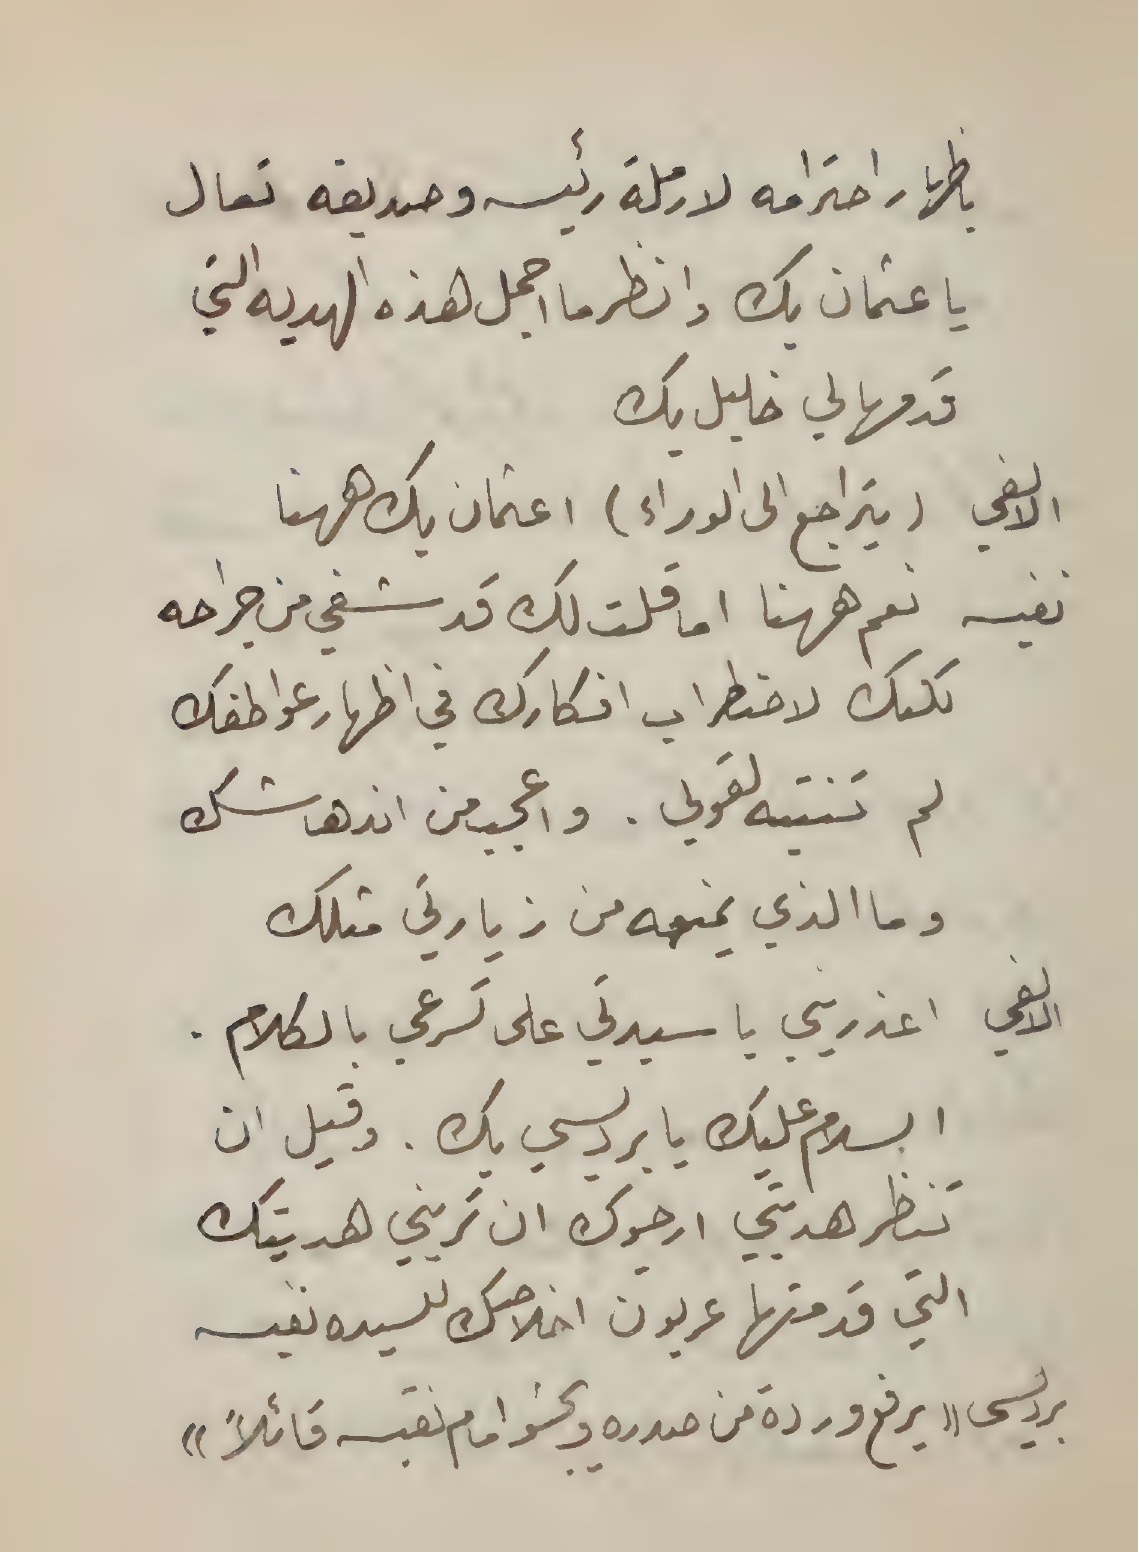 باظهار احترامه لارملة رئيسه وصديقه تعال
يا عثمان بك وانظر ما اجمل هذه الهديه التي
قدمها لي خليل بك
الالفي (يتراجع الى الوراء) اعثمان بك ههنا
نفيسه نعم ههنا اما قلت لك قد شفي من جراحه
لكنك لاضطراب افكارك في اظهار عواطفك
لم تنتبه لقولي . واعجب من اندهاشك
وما الذي يمنعه من زيارتي مثلك
الالفي اعذريني يا سيدتي على تسرعي بالكلام .
السلام عليك يا برديسي بك . وقبل ان
تنظر هديتي ارجوك ان تريني هديتك
التي قدمتها عربون اخلاصك للسيده نفيسه
برديسي «يرفع وردة من صدره ويجثو امام نفيسه قائلاً»